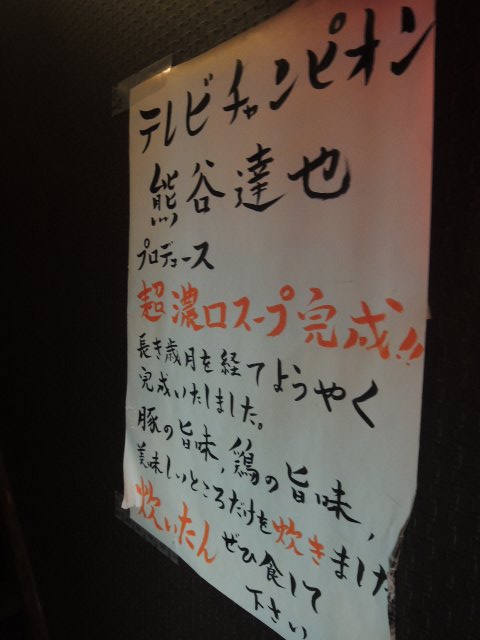 テレビチャンピオン
熊谷達也
プロデュース
超濃口スープ完成!!
長き歳月を経てようやく
完成いたしました。
豚の旨味,鶏の旨味,
美味しいところだけを炊きました
炊いたん ぜひ食して
下さい